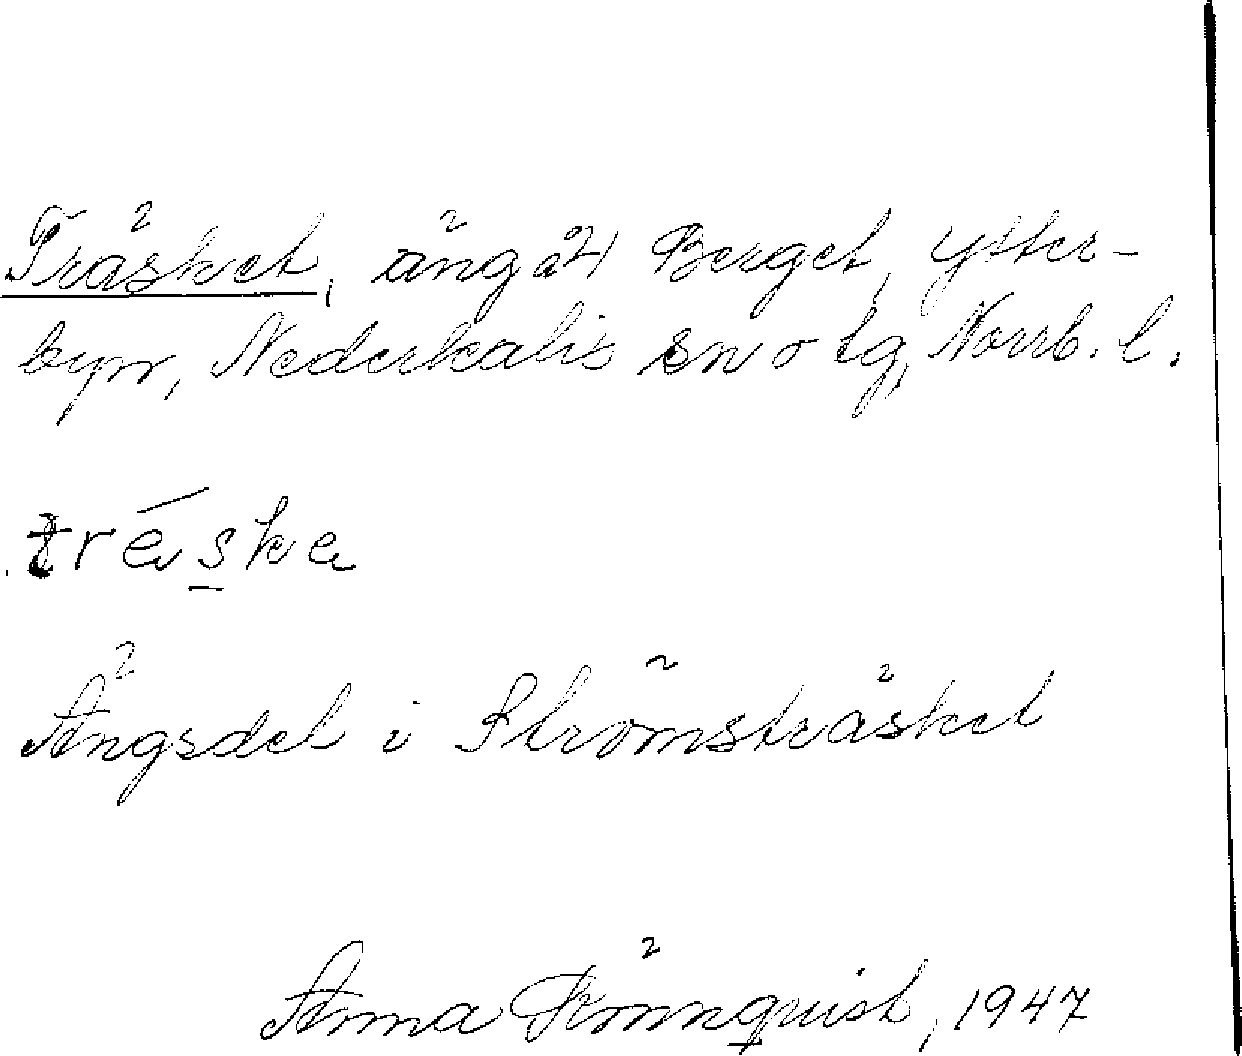 Träsket, äng å 4 Berget, Ytter-
byn, Nederkalix sn o tg, Norrb. l.
tréska
Ängsdel i Strömsträsket
Anna Rönnquist, 1947